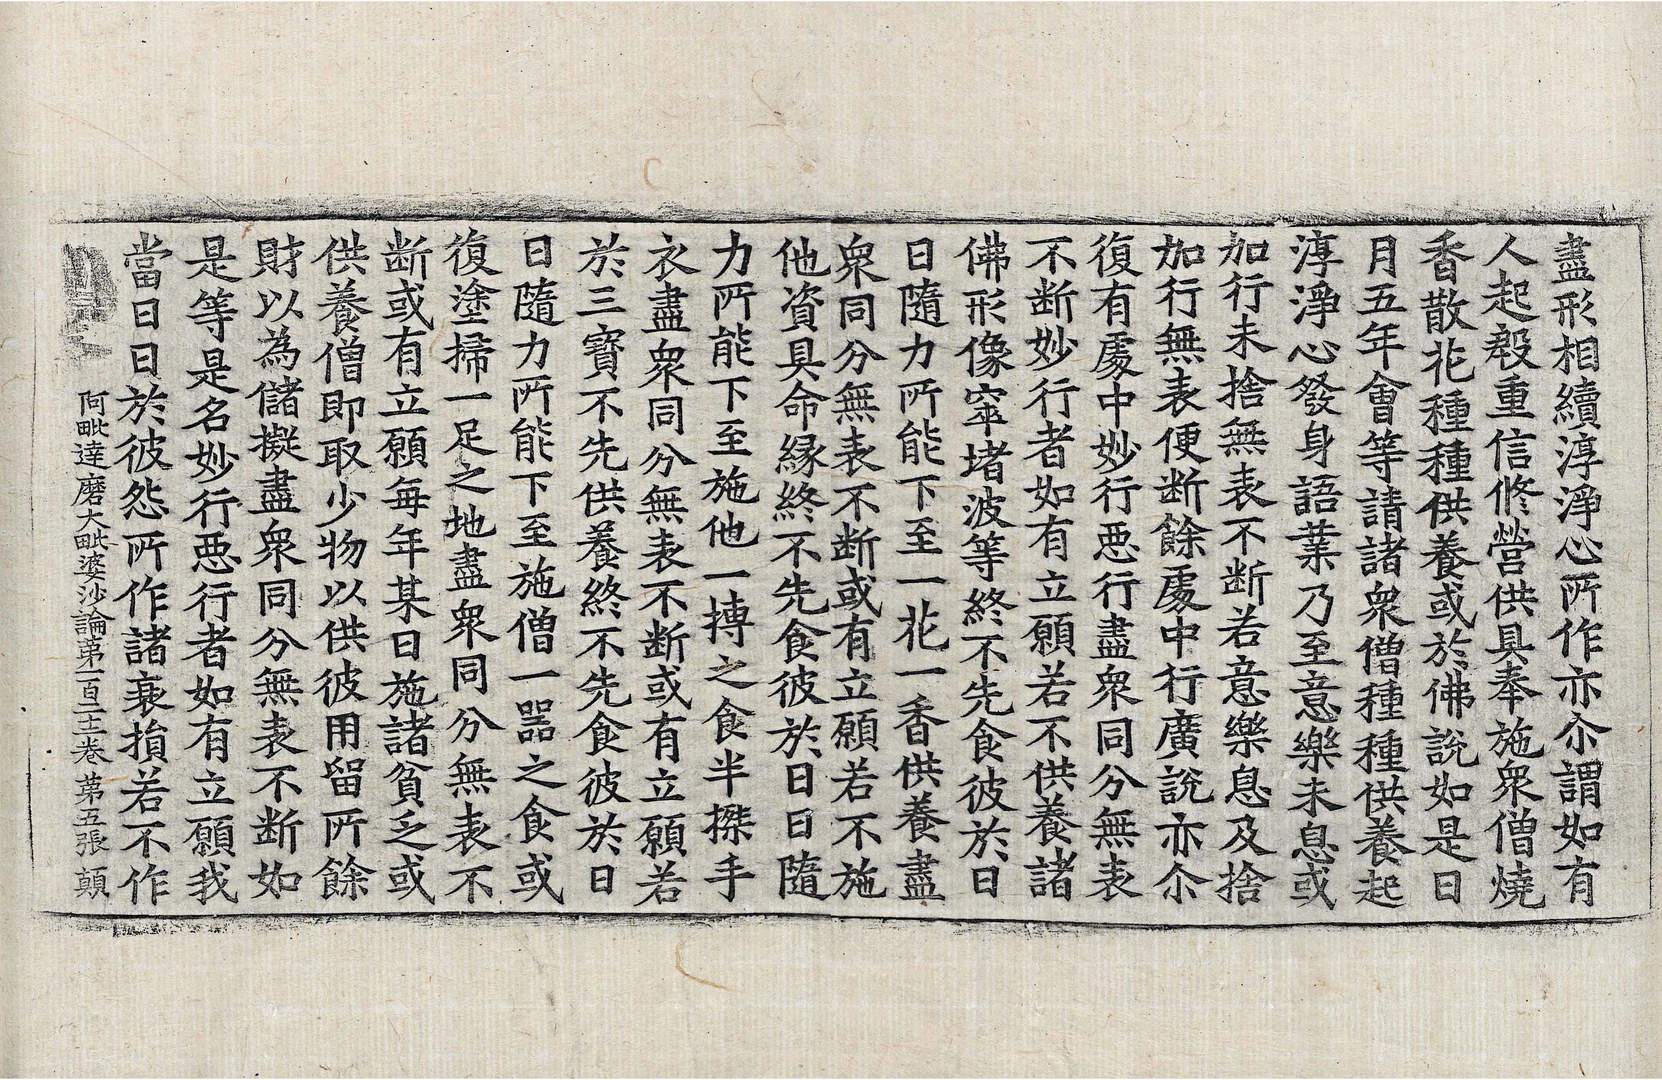 盡形相續淳淨心所作亦尒謂如有
人起殷重信修營供具奉施衆僧燒
香散花種種供養或於佛說如是日
月五年會等請諸衆僧種種供養起
淳淨心發身語業乃至意樂未息或
加行未捨無表不断若意樂息及捨
加行無表便断餘處中行廣說亦尒
復有處中妙行惡行盡衆同分無表
不断妙行者如有立願若不供養諸
佛形像窣堵波等終不先食彼於日
日隨力所能下至一花一香供養盡
衆同分無表不断或有立願若不施
他資具命縁終不先食彼於日日隨
力所能下至施他一摶之食半搩手
衣盡衆同分無表不断或有立願若
於三寶不先供養終不先食彼於日
日隨力所能下至施僧一器之食或
復塗掃一足之地盡衆同分無表不
断或有立願每年某日施諸貧乏或
供養僧即取少物以供彼用留所餘
財以為儲擬盡衆同分無表不断如
是等是名妙行惡行者如有立願我
當日日於彼怨所作諸衰損若不作
阿毗達磨大毗婆沙論第一百二十二卷 第五張 顛